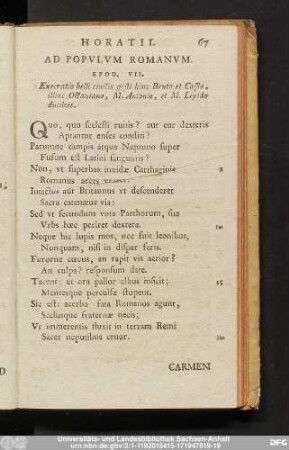 HORATII.
67
AD POPVLVM ROMANVM.
EPOD. VII.
Exsecratio belli ciuilis gesti hinc Bruto et Cassio,
illinc Octauiano, M. Antonio, et M. Lepido
ducibus.
Quo, quo scelesti ruitis? aut cur dexteris
Aptantur enses conditi?
Parumne campis atque Neptuno super
Fusum est Latini sanguinis?
Non, vt superbas inuidae Carthaginis 5
Romanus arces
Intactus aut Britannus vt descenderet
Sacra catenatus via:
Sed vt secundum vota Parthorum, sua
Vrbs haec periret dextera. 10
Neque hic lupis mos, nec fuit leonibus,
Nunquam, nisi in dispar feris.
Furorne coecus, an rapit vis acrior?
An culpa? responsum date.
Tacent: et ora pallor albus inficit; 15
Mentesque perculsae stupent.
Sic est: acerba fata Romanos agunt,
Scelusque fraternae necis;
Vt immerentis fluxit in terram Remi
Sacer nepotibus cruor. 20
CARMEN
Universitäts- und Landesbibliothek Sachsen-Anhalt
urn:nbn:de:gbv:3:1-1192015415-171947819-19
DFG